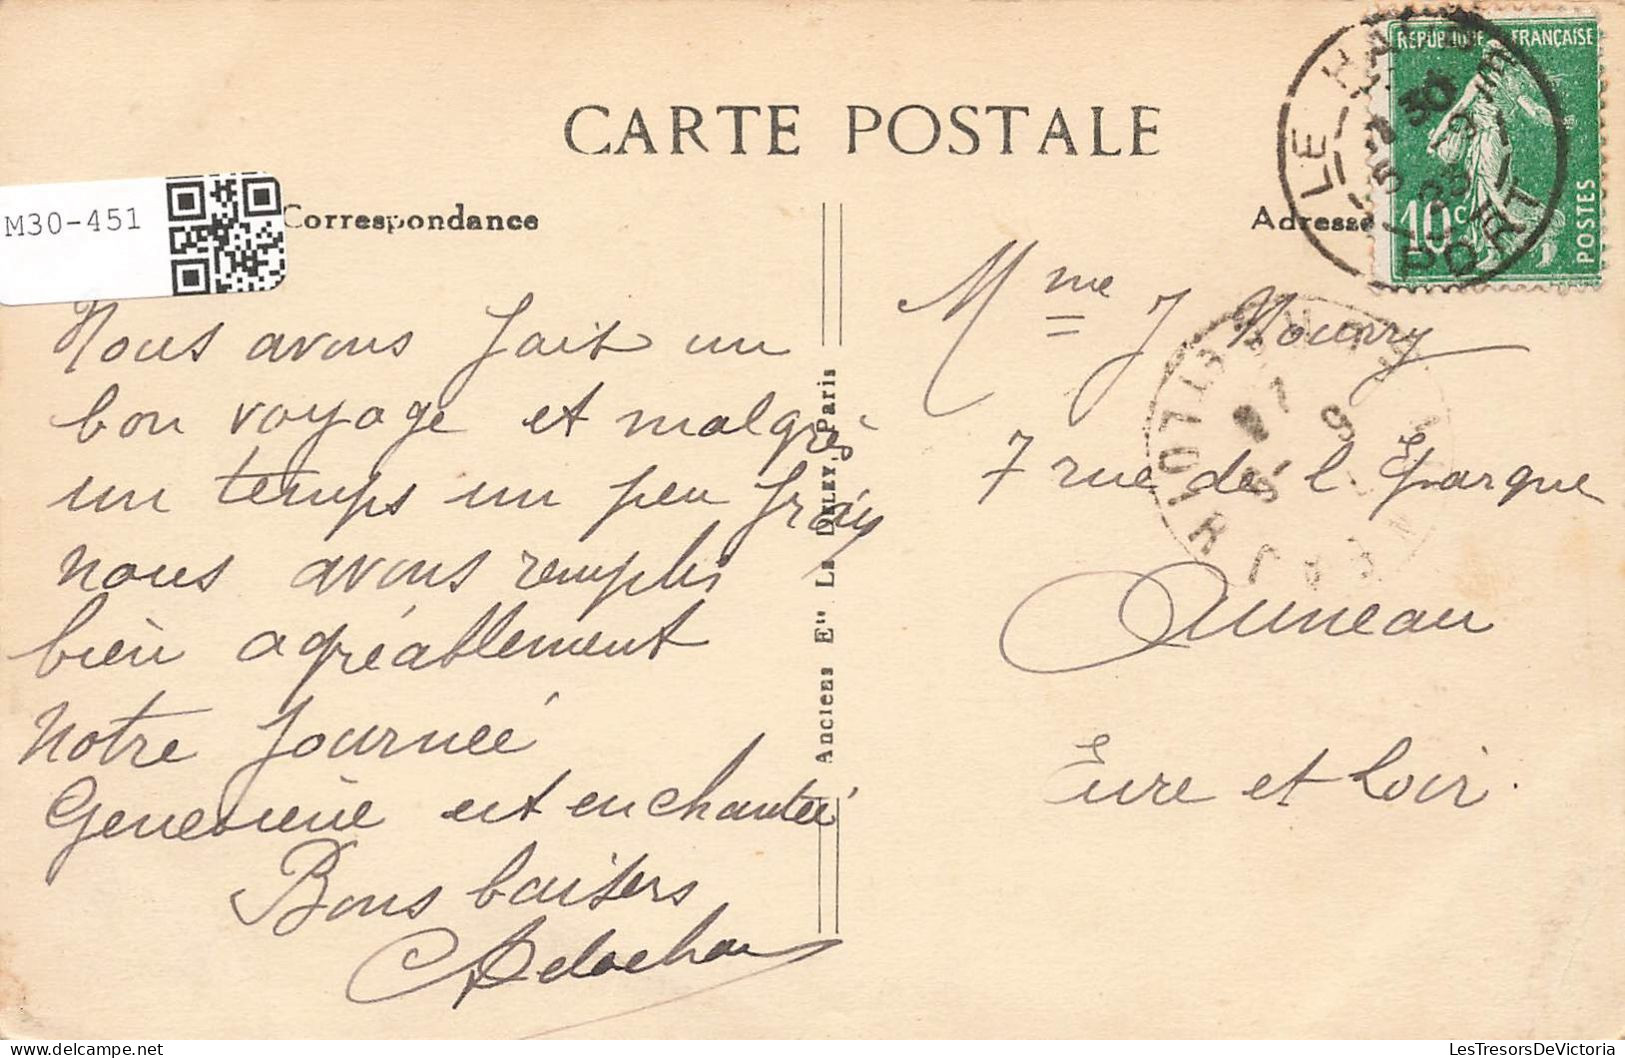 CARTE POSTALE
M30-451
Correspondance
Adresse
REPUBLIQUE FRANÇAISE
10c
POSTES
LE HAVRE
PORT
Mme J Nourry
7 rue de l Eparque
Auneau
Eure et Loir.
Nous avons fait un
bon voyage et malgré
un temps un peu frais
nous avons remplis
bien agréablement
Notre Journée
Geneviève est enchantée
Bons baisers
Anciens Etts LE DELEY, Paris
LesTresorsDeVictoria